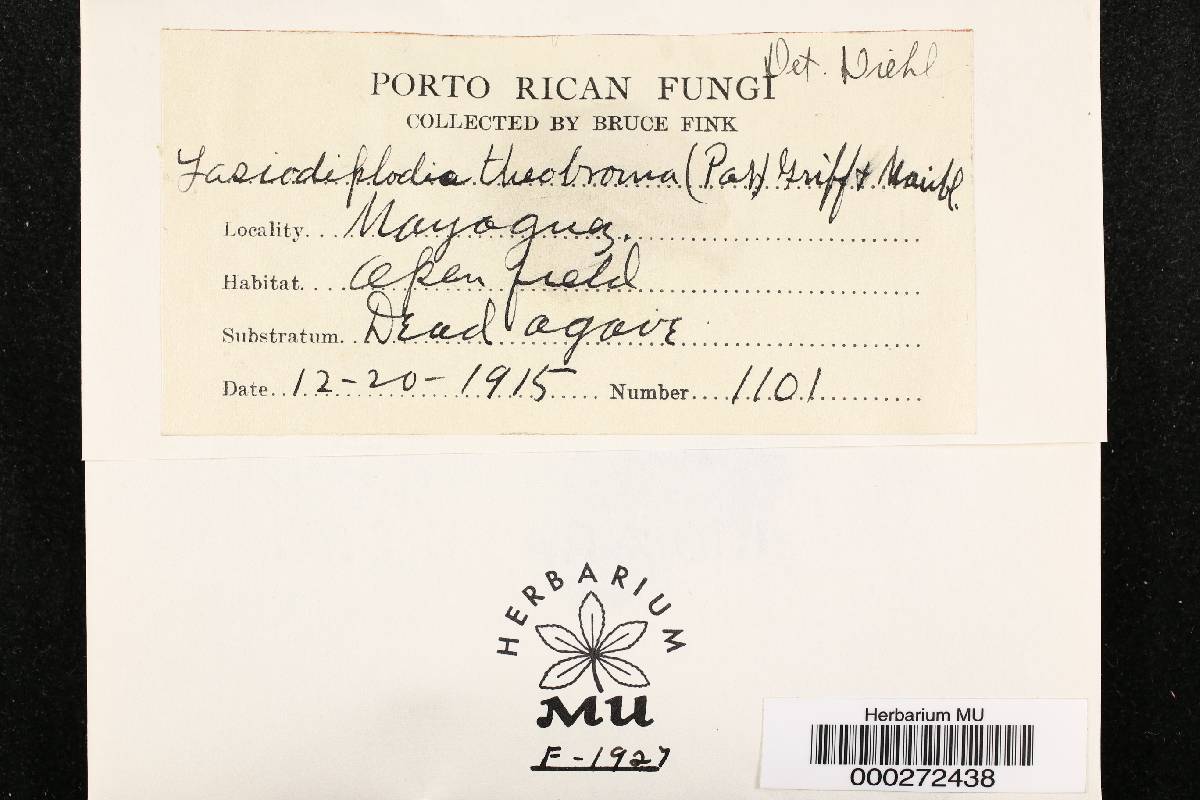 Det. Diehl
PORTO RICAN FUNGI
COLLECTED BY BRUCE FINK
Lasiodiplodia theobroma (Pat) Griff & Maubl.
Locality... Mayaguez.
Habitat.... Open field
Substratum.. Dead agave
Date.. 12-20-1915 ..... Number.... 1101
HERBARIUM
MU
F-1927
Herbarium MU
000272438